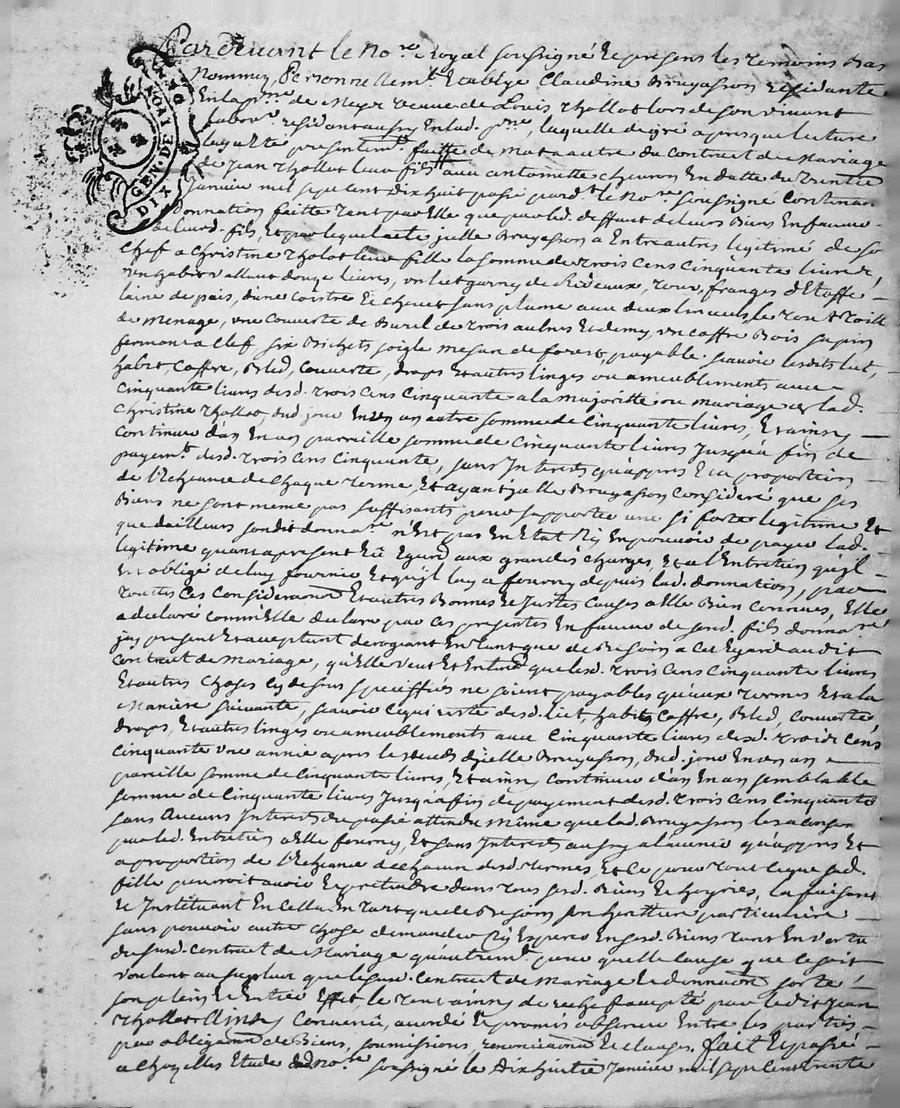 Pardevant le No.re Royal soussigné Et presens les temoins bas
Nommez Personnellem.t Etablye Claudine Bruyasson residante
En la p.sse de Meys veuve de Louis thollot lors de son vivant
labor.r residant aussy En lad. p.sse, laquelle de gré apres que lecture
luy a esté presentem.t faitte de mot a autre du Contract de Mariage
de Jean thollot leur fils avec antoinette En datte du trente
Janvier mil sept cent dix huit passé pard.t le No.re soussigné Contenant
Donnation faitte tant par Elle que par led. deffunt de leurs Biens En faveur
de leurd. fils, Et par lequel acte jcelle Bruyasson a Entre autres legitimé de son
Chef a Christine thollot leur fille la somme de trois cens cinquante livres,
un habit allant douze livres, un lict garny de Rideaux, tour, franges d'Etoffe
laine de païs, d'une coitre Et chevet sans plume avec deux linceuls, le tout toille
de menage, une couverte de Burel de trois aulnes Et demy, un coffre Bois sapin
fermant a clef six Bichets soigle mesure de forest, payable scavoir lesdits lict,
habit Coffre, Bled, Couverte, draps Et autres linges ou ameublements avec
Cinquante livres desd. trois cens cinquante a la majorité ou mariage de lad.
Christine thollot dud. jour En un an autre somme de Cinquante livres, Et ainsy
Continuer d'an En an pareille somme de Cinquante livres Jusqu'a fin de
payem.t desd. trois cens cinquante, sans Interets qu'appres Et a proportion
de l'Echeance de chaque terme, Et ayant jcelle Bruyasson Consideré que ses
Biens ne sont meme pas suffisants pour supporter une si forte legitime Et
que dailleurs sondit donnat.re n'Est pas En Etat Ny En pouvoir de payer lad.
legitime quant a present Eu Egard aux grandes charges, Et a l'Entretien qu'jl
Est obligé de luy fournir Et qu'jl luy a fourny depuis lad. donnation, par
toutes ces Considerations Et autres Bonnes Et Justes Causes a Elle Bien connues, Elle
a declaré comm'Elle declare par ces presentes En faveur de sond. fils donnat.re
jcy present Et acceptant derogeant En tant que de Besoin a cet Egard audit
Contract de Mariage, qu'Elle veut Et Entend que lesd. trois cens cinquante livres
Et autres choses cy dessus speciffiés ne soient payables qu'aux termes Et a la
Maniere suivante, scavoir ce qui reste desd. lict, habit, Coffre, Bled, Couverte
draps, Et autres linges ou ameublements avec Cinquante livres desd. trois cens
cinquante une année apres le deceds d'jcelle Bruyasson, dud. jour En un an
pareille somme de Cinquante livres, Et ainsy Continuer d'an En an semblable
somme de Cinquante livres Jusqu'a fin de payement desd. trois cens cinquante
sans aucuns Interets du passé attendu même que lad. Bruyasson
par led. Entretien a Elle fourny, Et sans Interets aussy a l'avenir qu'appres Et
a proportion de l'Echeance de chacun desd. termes, Et Ce pour tout ce que sad.
fille pourroit avoir Et pretendre dans tous sesd. Biens Et hoyries, la faisant
Et Instituant En cella En tant que de Besoin son heritiere particuliere
sans pouvoir autre chose demander Ny Esperer En sesd. Biens tant En vertu
dususd. Contract de Mariage qu'autrem.t pour quelle Cause que ce soit
voulant au surplus que lesusd. Contract de Mariage Et donnation sorte
son plein Et Entier Effet, le tout ainsy de rechef accepté par ledit Jean
thollot Ainsy Convenu, accordé Et promis observer Entre les parties
par obligations de Biens, soumissions, renonciations Et clauses. fait Et passé
a Chazelles Etude dud. No.re soussigné le Dix huitie Janvier mil sept cent trente
GEN. DE LYON
DIX